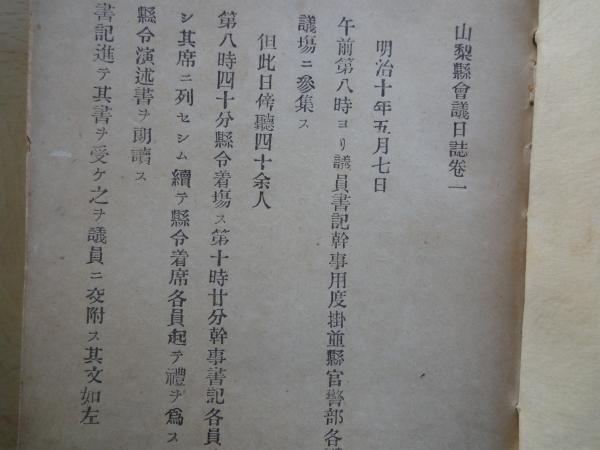 山梨縣會議日誌卷一
明治十年五月七日
午前第八時ヨリ議員書記幹事用度掛並縣官警部各
議塲ニ參集ス
但此日傍聽四十余人
第八時四十分縣令着塲ス第十時廿分幹事書記各員
シ其席ニ列セシム續テ縣令着席各員起テ禮ヲ爲ス
縣令演述書ヲ朗讀ス
書記進テ其書ヲ受ケ之ヲ議員ニ交附ス其文如左